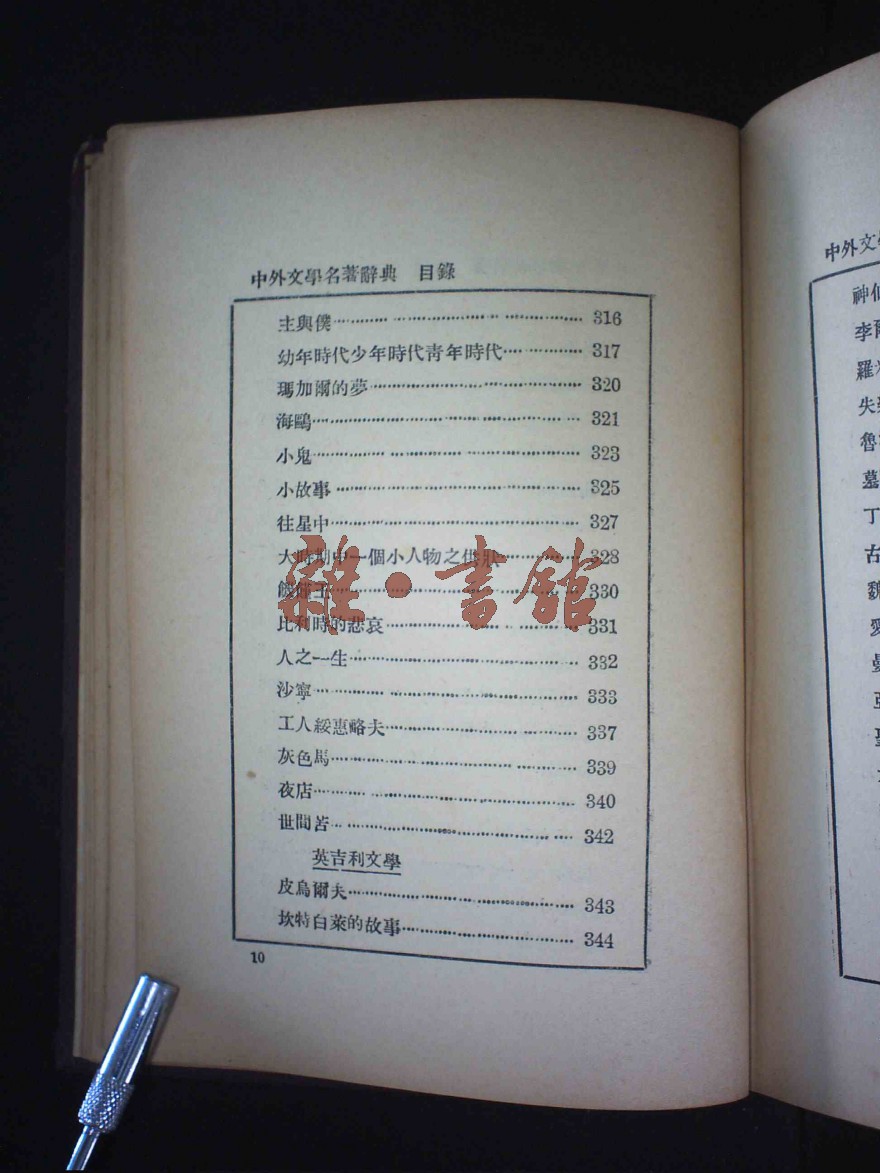 中外文學名著辭典 目錄
主與僕 316
幼年時代少年時代靑年時代 317
瑪加爾的夢 320
海鷗 321
小鬼 323
小故事 325
往星中 327
大時期中一個小人物之供狀 328
330
比利時的悲哀 331
人之一生 332
沙寧 333
工人綏惠略夫 337
灰色馬 339
夜店 340
世間苦 342
英吉利文學
皮烏爾夫 343
坎特白萊的故事 344
10
雜·書館
中外文
神
李
失
魯
墓
丁
古
魏